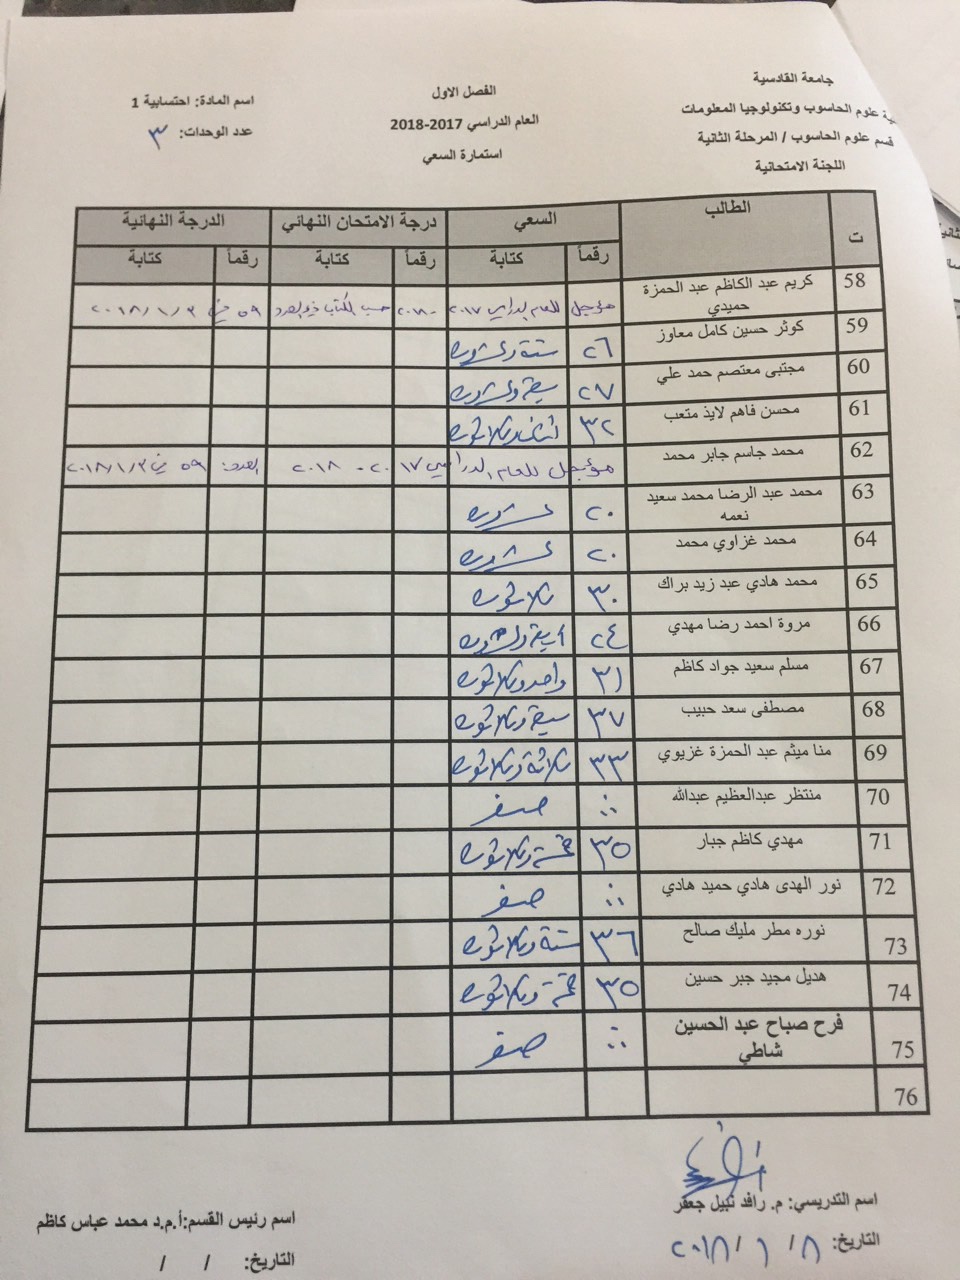 جامعة القادسية
ية علوم الحاسوب وتكنولوجيا المعلومات
قسم علوم الحاسوب / المرحلة الثانية
اللجنة الامتحانية
الفصل الاول
العام الدراسي 2017-2018
استمارة السعي
اسم المادة: احتسابية 1
عدد الوحدات: ٣
ت الطالب السعي درجة الامتحان النهائي الدرجة النهائية
رقماً كتابة رقماً كتابة رقماً كتابة
58 كريم عبد الكاظم عبد الحمزة حميدي مؤجل للعام الدراسي ٢٠١٧ - ٢٠١٨ حسب الكتاب ذي العدد ٥٩ في ٢٠١٨/١/٣
59 كوثر حسين كامل معاوز ٢٦ ستة وعشرون
60 مجتبى معتصم حمد علي ٢٧ سبعة وعشرون
61 محسن فاهم لايذ متعب ٣٢ اثنان وثلاثون
62 محمد جاسم جابر محمد مؤجل للعام الدراسي ٢٠١٧ - ٢٠١٨ العدد: ٥٩ في ٢٠١٨/١/٣
63 محمد عبد الرضا محمد سعيد نعمه ٢٠ عشرون
64 محمد غزاوي محمد ٢٠ عشرون
65 محمد هادي عبد زيد براك ٣٠ ثلاثون
66 مروة احمد رضا مهدي ٢٤ اربعة وعشرون
67 مسلم سعيد جواد كاظم ٣١ واحد وثلاثون
68 مصطفى سعد حبيب ٣٧ سبعة وثلاثون
69 منا ميثم عبد الحمزة غزيوي ٣٣ ثلاثة وثلاثون
70 منتظر عبدالعظيم عبدالله ٠٠ صفر
71 مهدي كاظم جبار ٣٥ خمسة وثلاثون
72 نور الهدى هادي حميد هادي ٠٠ صفر
73 نوره مطر مليك صالح ٣٦ ستة وثلاثون
74 هديل مجيد جبر حسين ٣٥ خمسة وثلاثون
75 فرح صباح عبد الحسين شاطي ٠٠ صفر
76
اسم التدريسي: م. رافد نبيل جعفر
التاريخ: ٨ / ١ / ٢٠١٨
اسم رئيس القسم: أ.م.د محمد عباس كاظم
التاريخ: / /